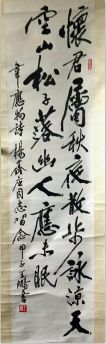 懷君屬秋夜散步詠涼天
空山松子落幽人應未眠
韋應物詩 楊 同志 念 甲子